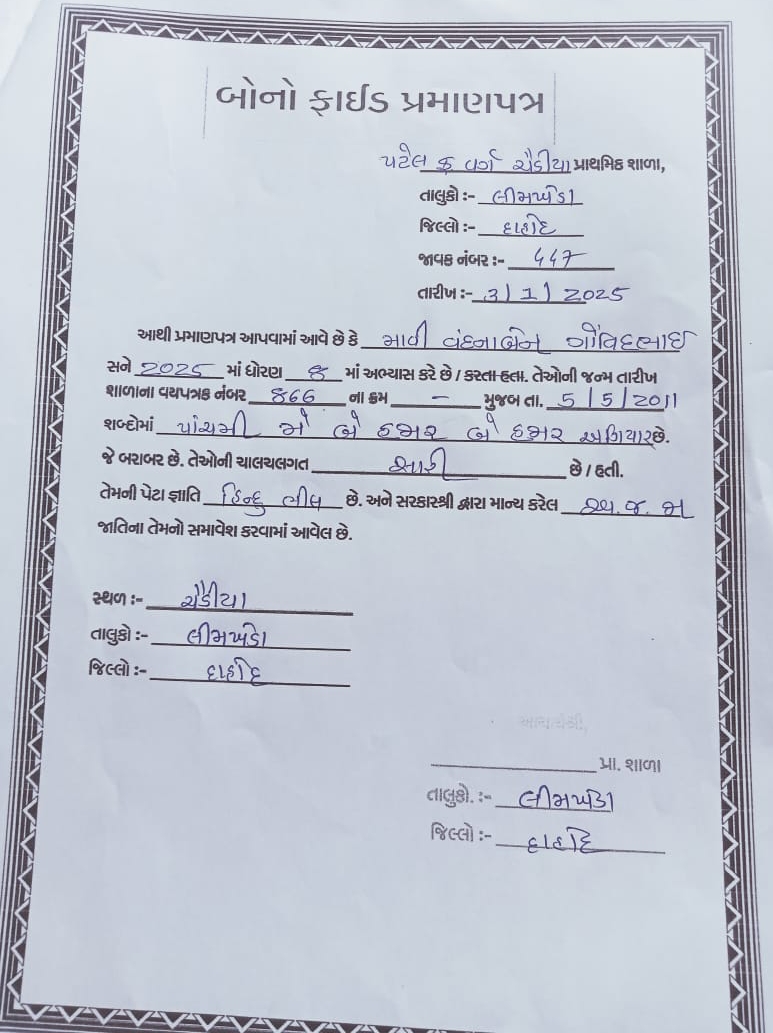 બોનો ફાઈડ પ્રમાણપત્ર
પટેલ ફ વર્ગ ચૈડીયા પ્રાથમિક શાળા,
તાલુકો :- લીમખેડા
જિલ્લો :- દાહોદ
જાવક નંબર :- 447
તારીખ :- 3/1/2025
આથી પ્રમાણપત્ર આપવામાં આવે છે કે માવી વંદનાબેન ગોવિંદભાઈ
સને 2025 માં ધોરણ 8 માં અભ્યાસ કરે છે / કરતા હતા. તેઓની જન્મ તારીખ
શાળાના વયપત્રક નંબર 866 ના ક્રમ - મુજબ તા. 5/5/2011
શબ્દોમાં પાંચમી મે બે હજાર બે હજાર અગિયાર છે.
જે બરાબર છે. તેઓની ચાલચલગત સારી છે / હતી.
તેમની પેટા જ્ઞાતિ હિન્દુ ભીલ છે. અને સરકારશ્રી દ્વારા માન્ય કરેલ અ.જ.જા
જાતિના તેમનો સમાવેશ કરવામાં આવેલ છે.
સ્થળ :- ચૈડીયા
તાલુકો :- લીમખેડા
જિલ્લો :- દાહોદ
આચાર્યશ્રી,
પ્રા. શાળા
તાલુકો. :- લીમખેડા
જિલ્લો :- દાહોદ